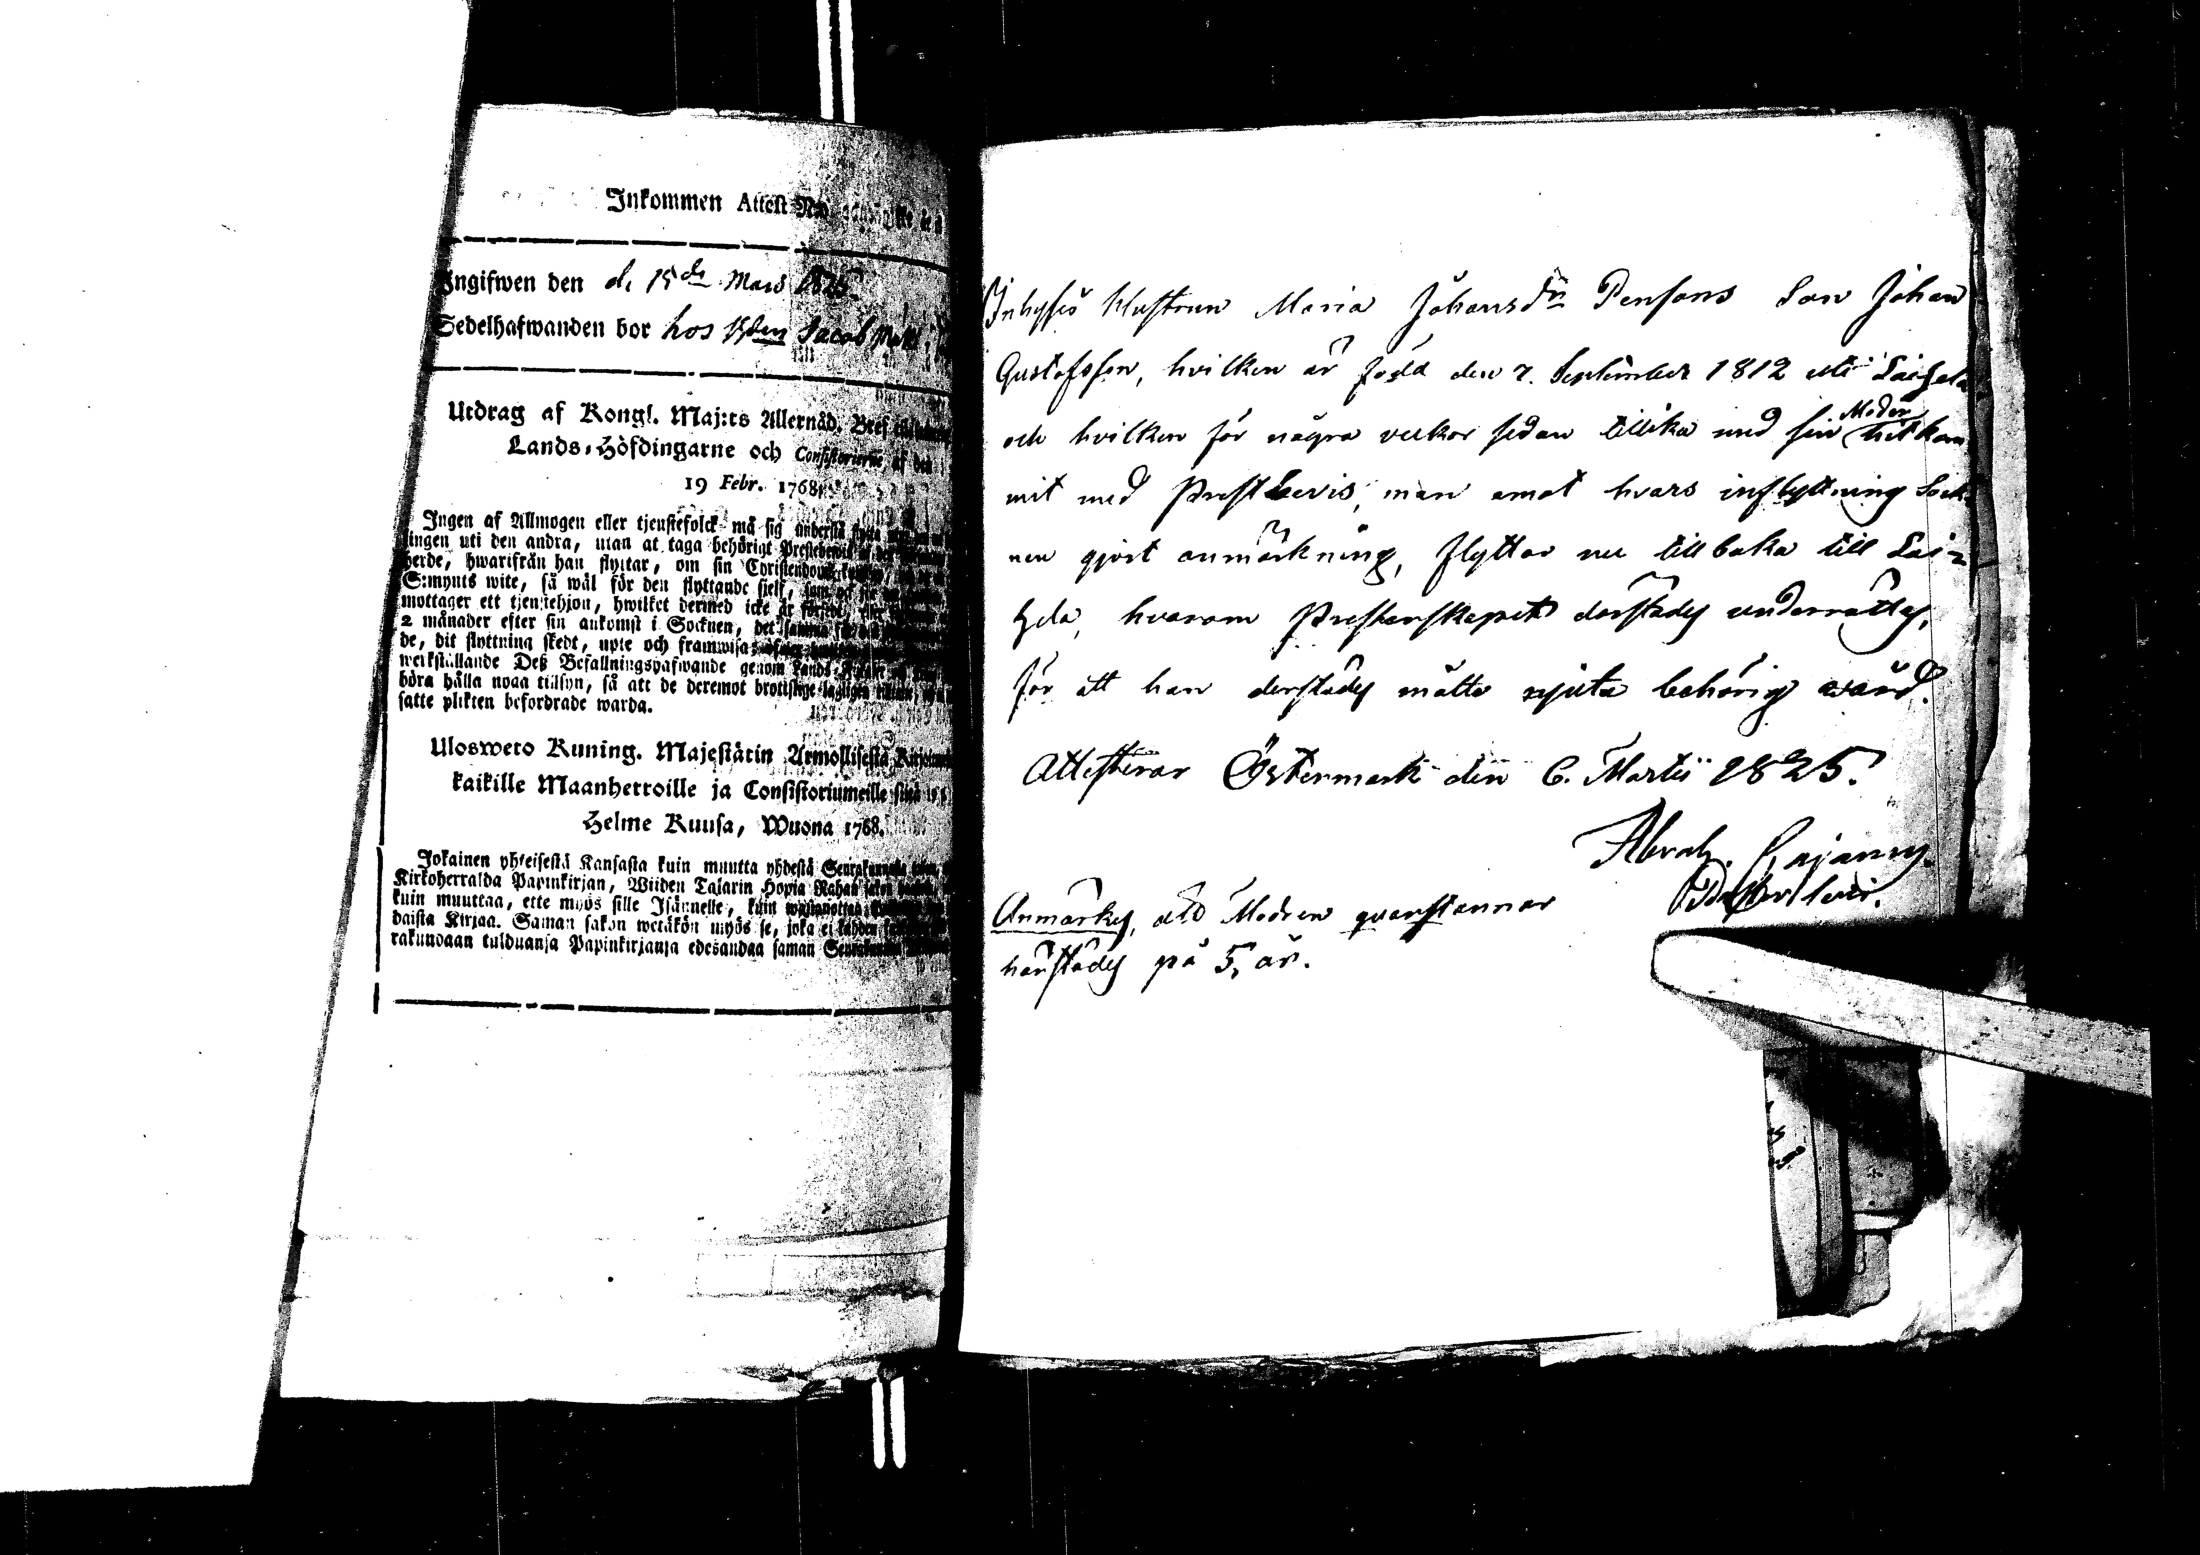 Inkommen Attest N:o
Ingifwen den d. 15de Mars 1825
Sedelhafwanden bor hos Bden Jacob Matts
Utdrag af Kongl. Maj:ts Allernåd. Bref
Lands-Höfdingarne och Consistorierne, af den
19 Febr. 1768.
Ingen af Allmogen eller tjenstefolck må sig understå flytta
lingen uti den andra, utan at taga behörigt Prestebewis af
herde, hwarifrån han flyttar, om sin Christendoms
S:mynts wite, så wäl för den flyttande sjelf, som
mottager ett tjenstehjon, hwilket dermed icke är försedt, eller
2 månader efter sin ankomst i Socknen, det samma för
de, dit flyttning skedt, upte och framwisa
werkställande Deß Befallningshafwande genom Lands
böra hålla noga tillsyn, så att de deremot brotslige lagligen
satte plikten befordrade warda.
Ulosweto Kuning. Majestätin Armollisesta Kirjoitu
kaikille Maanherroille ja Consistoriumeille siitä 19 p.
Helme Kuusa, Wuona 1768.
Jokainen yhteisestä Kansasta kuin muutta yhdestä Seurakunnasta
Kirkoherralda Papinkirjan, Wiiden Talarin Hopia Rahan sakon
kuin muuttaa, ette myös sille Isännelle, kuin wastanottaa
daista Kirjaa. Saman sakon wetäkön myös se, joka ei kahden
rakundaan tulduansa Papinkirjansa edesandaa saman Seurakunnan
Inhyses Hustrun Maria Johansdr Pensons Son Johan
Gustafsson, hvilken är född den 7. September 1812 uti Laihela
och hvilken för några veckor sedan tillika med sin Moder hit kom-
mit med Prestbevis, men emot hvars inflyttning Sock-
nen gjort anmärkning, flyttar nu tillbaka till Lai-
hela, hvarom Presterskapet derstädes underrättes,
för att han derstädes måtte njuta behörig vård.
Attesterar Östermark den 6. Martii 1825.
Abrah. Cajanus.
Anmärkes, att Modren qvarstannar
härstädes på 5, år.